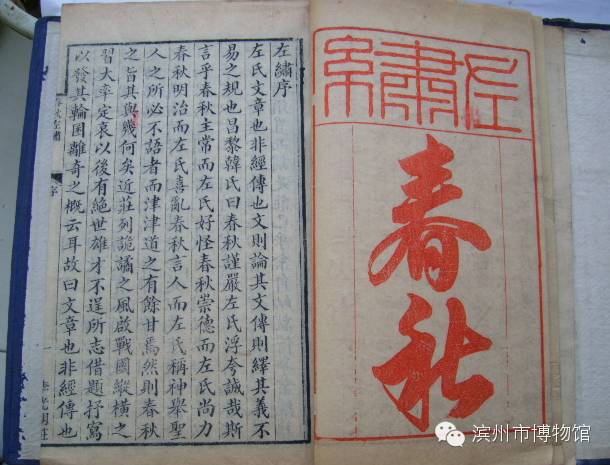 左繡
春秋
左繡序
左氏文章也非經傳也文則論其文傳則繹其義不
易之規也昌黎韓氏曰春秋謹嚴左氏浮夸誠哉斯
言乎春秋主常而左氏好怪春秋崇德而左氏尚力
春秋明治而左氏喜亂春秋言人而左氏稱神舉聖
人之所必不語者而津津道之有餘甘焉然則春秋
之旨其與幾何矣近莊列詭譎之風啟戰國縱橫之
習大率定哀以後有絕世雄才不逞所志借題抒寫
以發其輪囷離奇之概云耳故曰文章也非經傳也
春秋左繡
序
李光明莊
滨州市博物馆